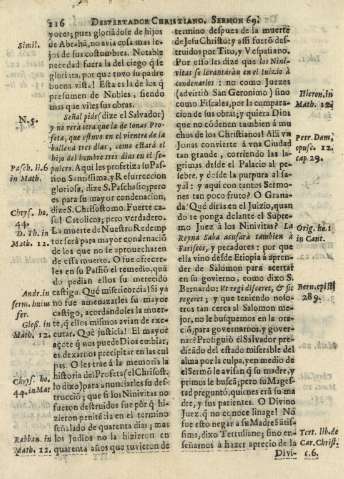 216 DESPERTADOR CHRISTIANO. SERMON 69.
yores; pues gloriandose de hijos
de Abrahã, no avia cosa mas le-
jos de sus costumbres. Notable
recedad fuera la del ciego q̃ se
gloriára, por que tuvo su padre
buena vista! Esta es la de los q̃
presumen de Nobles, siendo
mas que viles sus obras.
Señal pide (dize el Salvador)
y no verá otra que la de Ionas Pro-
feta, que estuvo en el vientre de la
ballena tres dias, como estará el
hijo del hombre tres dias en el se-
pulcro. Aqui les profetiza su Pas-
sion Santissima, y Resurreccion
gloriosa, dize S. Paschasio; pero
es para su mayor condenacion,
dize S. Chrisostomo. Fuerte co-
sa! Catolicos; pero verdadero.
La muerte de Nuestro Redemp
tor será para mayor condenació
de los que no se aprovecharen
de esta muerte. O fue ofrecer-
les en su Passió el remedio, quã
do pedian ellos su merecido
castigo, dize S. Andres. Por què
no fue amenazarles su mayor
castigo, acordandoles la muer-
te, q̃ ellos mismos avian de exe-
cutar. Què justicia! El mayor
açote q̃ nos puede Dios embiar,
es dexarnos precipitar en las cul
pas. O les trae à la memoria la
historia des Profeta (el Chrisost.
lo dixo) para anunciarles su des-
truccion; que si los Ninivitas no
fueron destruidos fue porq̃ hi-
zieron penitécia en el termino
señalado de quarenta dias; mas
los Judios no la hizieron en
quarenta años que tuvieron de
termino despues de la muerte
de Jesu Christo; y assi fueron des-
truidos por Tito, y Vespasiano.
Por esso les dize que los Nini-
vitas se levantarán en el Iuizio à
condenarles: no como Juezes
(advirtió San Geronimo) sino
como Fiscales, por la compara-
cion de sus obras; y quiera Dios
que no condenen tambien à
muchos de los Christianos! Allá vn
Jonas convierte à vna Ciudad
tan grande, corriendo las la-
grimas desde el Palacio al pe-
sebre, y desde la purpura al sa-
yal: y aqui con tantos Sermo-
nes tan poco fruto? O Grana-
da! Què diràs en el Juizio, quan
do te ponga delante el Supre-
mo Juez à los Ninivitas? La
Reyna Saba acusará tambien à los
Fariseos, y Pecadores: por que
ella vino desde Etiopia à apren-
der de Salomon para acertar
en su governo; como dixo S.
Bernardo: Et regi disceret, & sic
regeret; y que teniendo noso-
tros tan cerca al Salomon me-
jor, no le busquemos en la ora-
ció, para governarnos, y gover-
nar? Prosiguió el Salvador pre-
dicando del estado miserable del
alma por la culpa, y en medio de
el Sermõ le avisan q̃ su madre, y
primos le buscã; pero su Mages-
tad preguntó, quienes erã su ma
dre, y sus parientes. O Divino
Juez, q̃ no conoce linage! No
fue esto negar à su Madre Sãtis-
sima, dixo Tertuliano; sino en-
señarnos à hazer aprecio de la
Divi-
Simil.
N. 5.
Pasch. li. 6
in Math.
Chrys. ho.
44.
D. Th. in
Math. 12.
Glos. in
Math. 12.
Chrys. ho.
44. in Mat
Raban. in
Math. 12.
Hieron. in
Math. 12.
Petr. Dam.
opusc. 12.
cap. 29.
Orig. ho. 1
in Cant.
Bern. epist
289.
Tert. lib. de
Car. Christ.
c. 6.